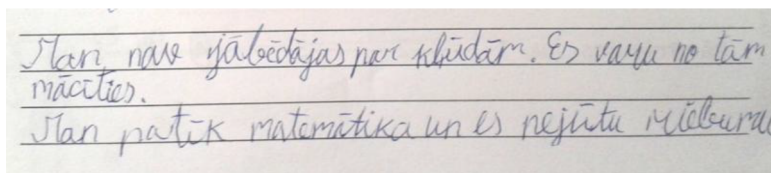 Man nav jābēdājas par kļūdām. Es varu no tām
mācīties.
Man patīk matemātika un es nejūtu